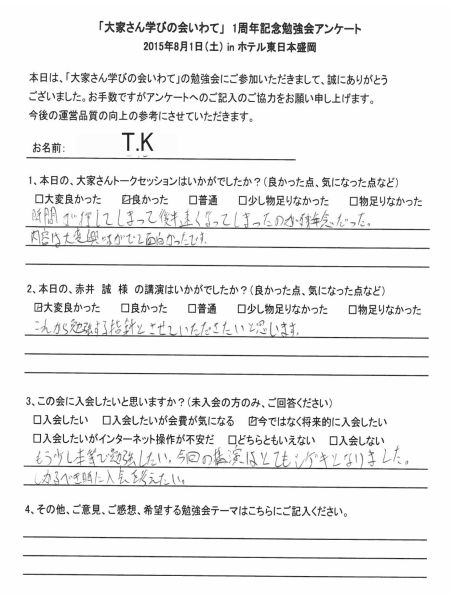 「大家さん学びの会いわて」 1周年記念勉強会アンケート
2015年8月1日（土） in ホテル東日本盛岡
本日は、「大家さん学びの会いわて」の勉強会にご参加いただきまして、誠にありがとう
ございました。お手数ですがアンケートへのご記入のご協力をお願い申し上げます。
今後の運営品質の向上の参考にさせていただきます。
お名前: T.K
1、本日の、大家さんトークセッションはいかがでしたか？（良かった点、気になった点など）
□大変良かった ☑良かった □普通 □少し物足りなかった □物足りなかった
時間が押してしまって後半速くなってしまったのが残念だった。
内容は大変興味がでて面白かったです。
2、本日の、赤井 誠 様 の講演はいかがでしたか？（良かった点、気になった点など）
☑大変良かった □良かった □普通 □少し物足りなかった □物足りなかった
これから勉強する指針とさせていただきたいと思います。
3、この会に入会したいと思いますか？（未入会の方のみ、ご回答ください）
□入会したい □入会したいが会費が気になる ☑今ではなく将来的に入会したい
□入会したいがインターネット操作が不安だ □どちらともいえない □入会しない
もう少し本等で勉強したい。今回の講演はとてもシゲキとなりました。
しかるべき時に入会を考えたい。
4、その他、ご意見、ご感想、希望する勉強会テーマはこちらにご記入ください。